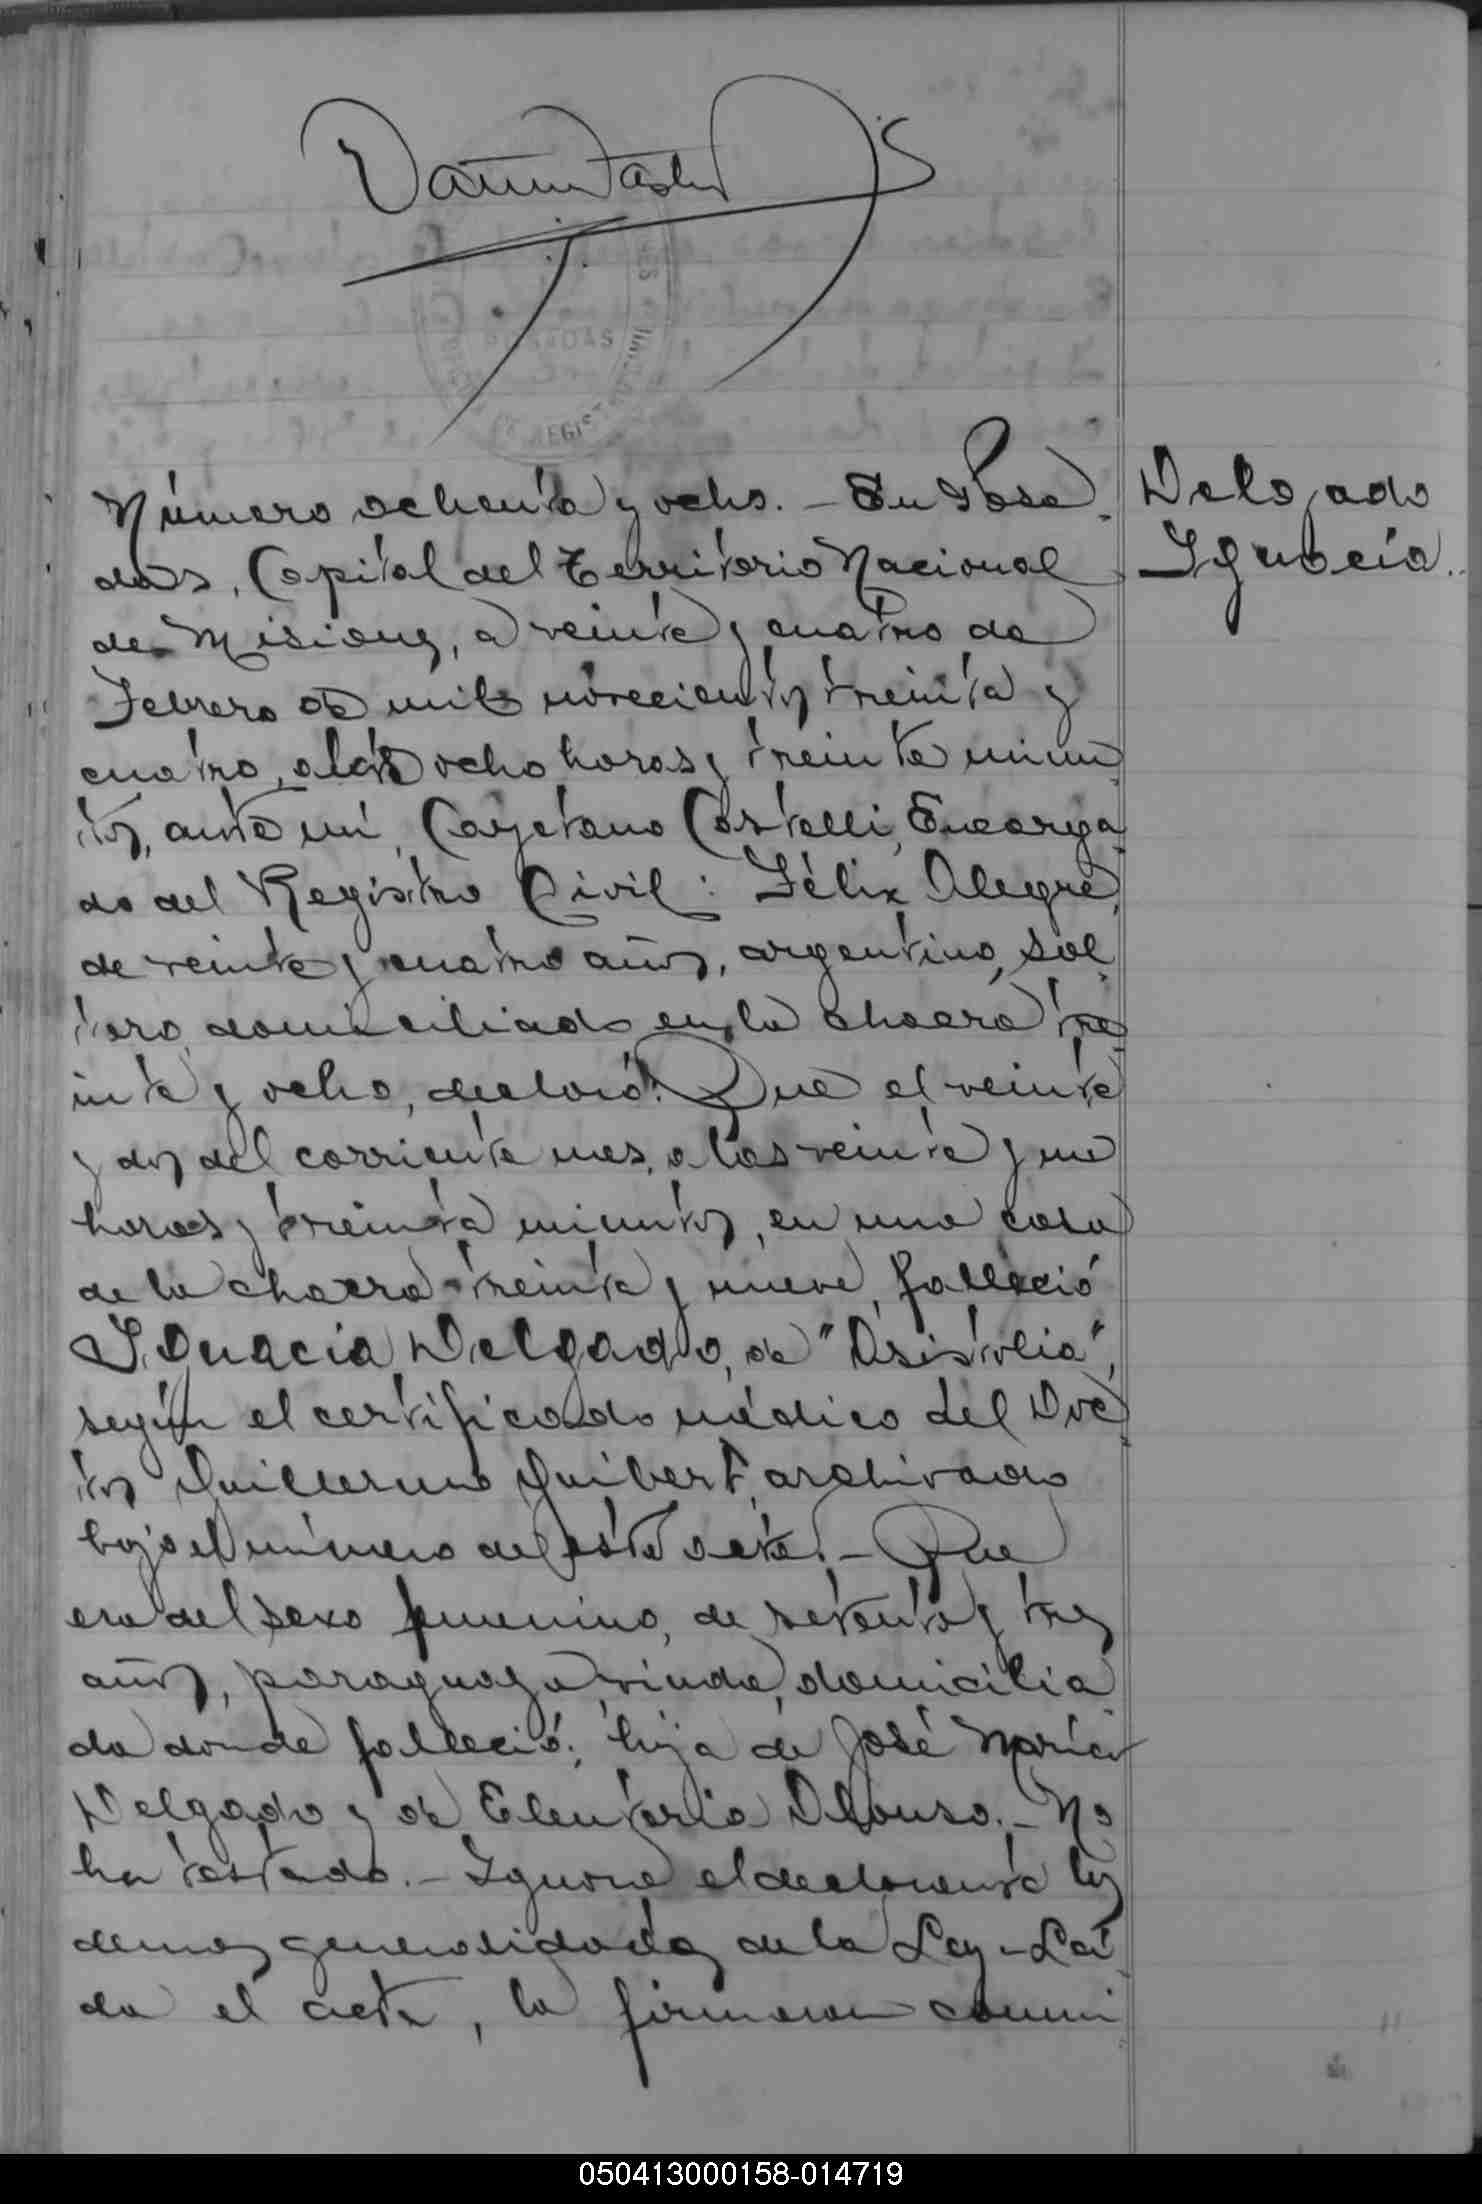 Número ochenta y ocho. - En Posa-
das, Capital del Territorio Nacional
de Misiones, a veinte y cuatro de
Febrero de mil novecientos treinta y
cuatro, a las ocho horas y treinta minu-
tos, ante mi, Cayetano Castelli, Encarga-
do del Registro Civil: Félix Alegre,
de veinte y cuatro años, argentino, sol-
tero, domiciliado en la chacra tre-
inta y ocho, declaró: Que el veinte
y dos del corriente mes, a las veinte y una
horas y treinta minutos, en una casa
de la chacra treinta y nueve, falleció
Ignacia Delgado, de "Asistolia",
según el certificado médico del Doc-
tor Guillermo Guibert, archivado
bajo el número de ésta acta. - Que
era del sexo femenino, de setenta y tres
años, paraguaya, viuda, domicilia-
da dónde falleció; hija de José María
Delgado y de Eleuteria Alonso. - No
ha testado. - Ignora el declarante las
demas generalidades de la Ley - Leí-
da el acta, la firmaron conmi
Delgado
Ignacia.
POSADAS
050413000158-014719